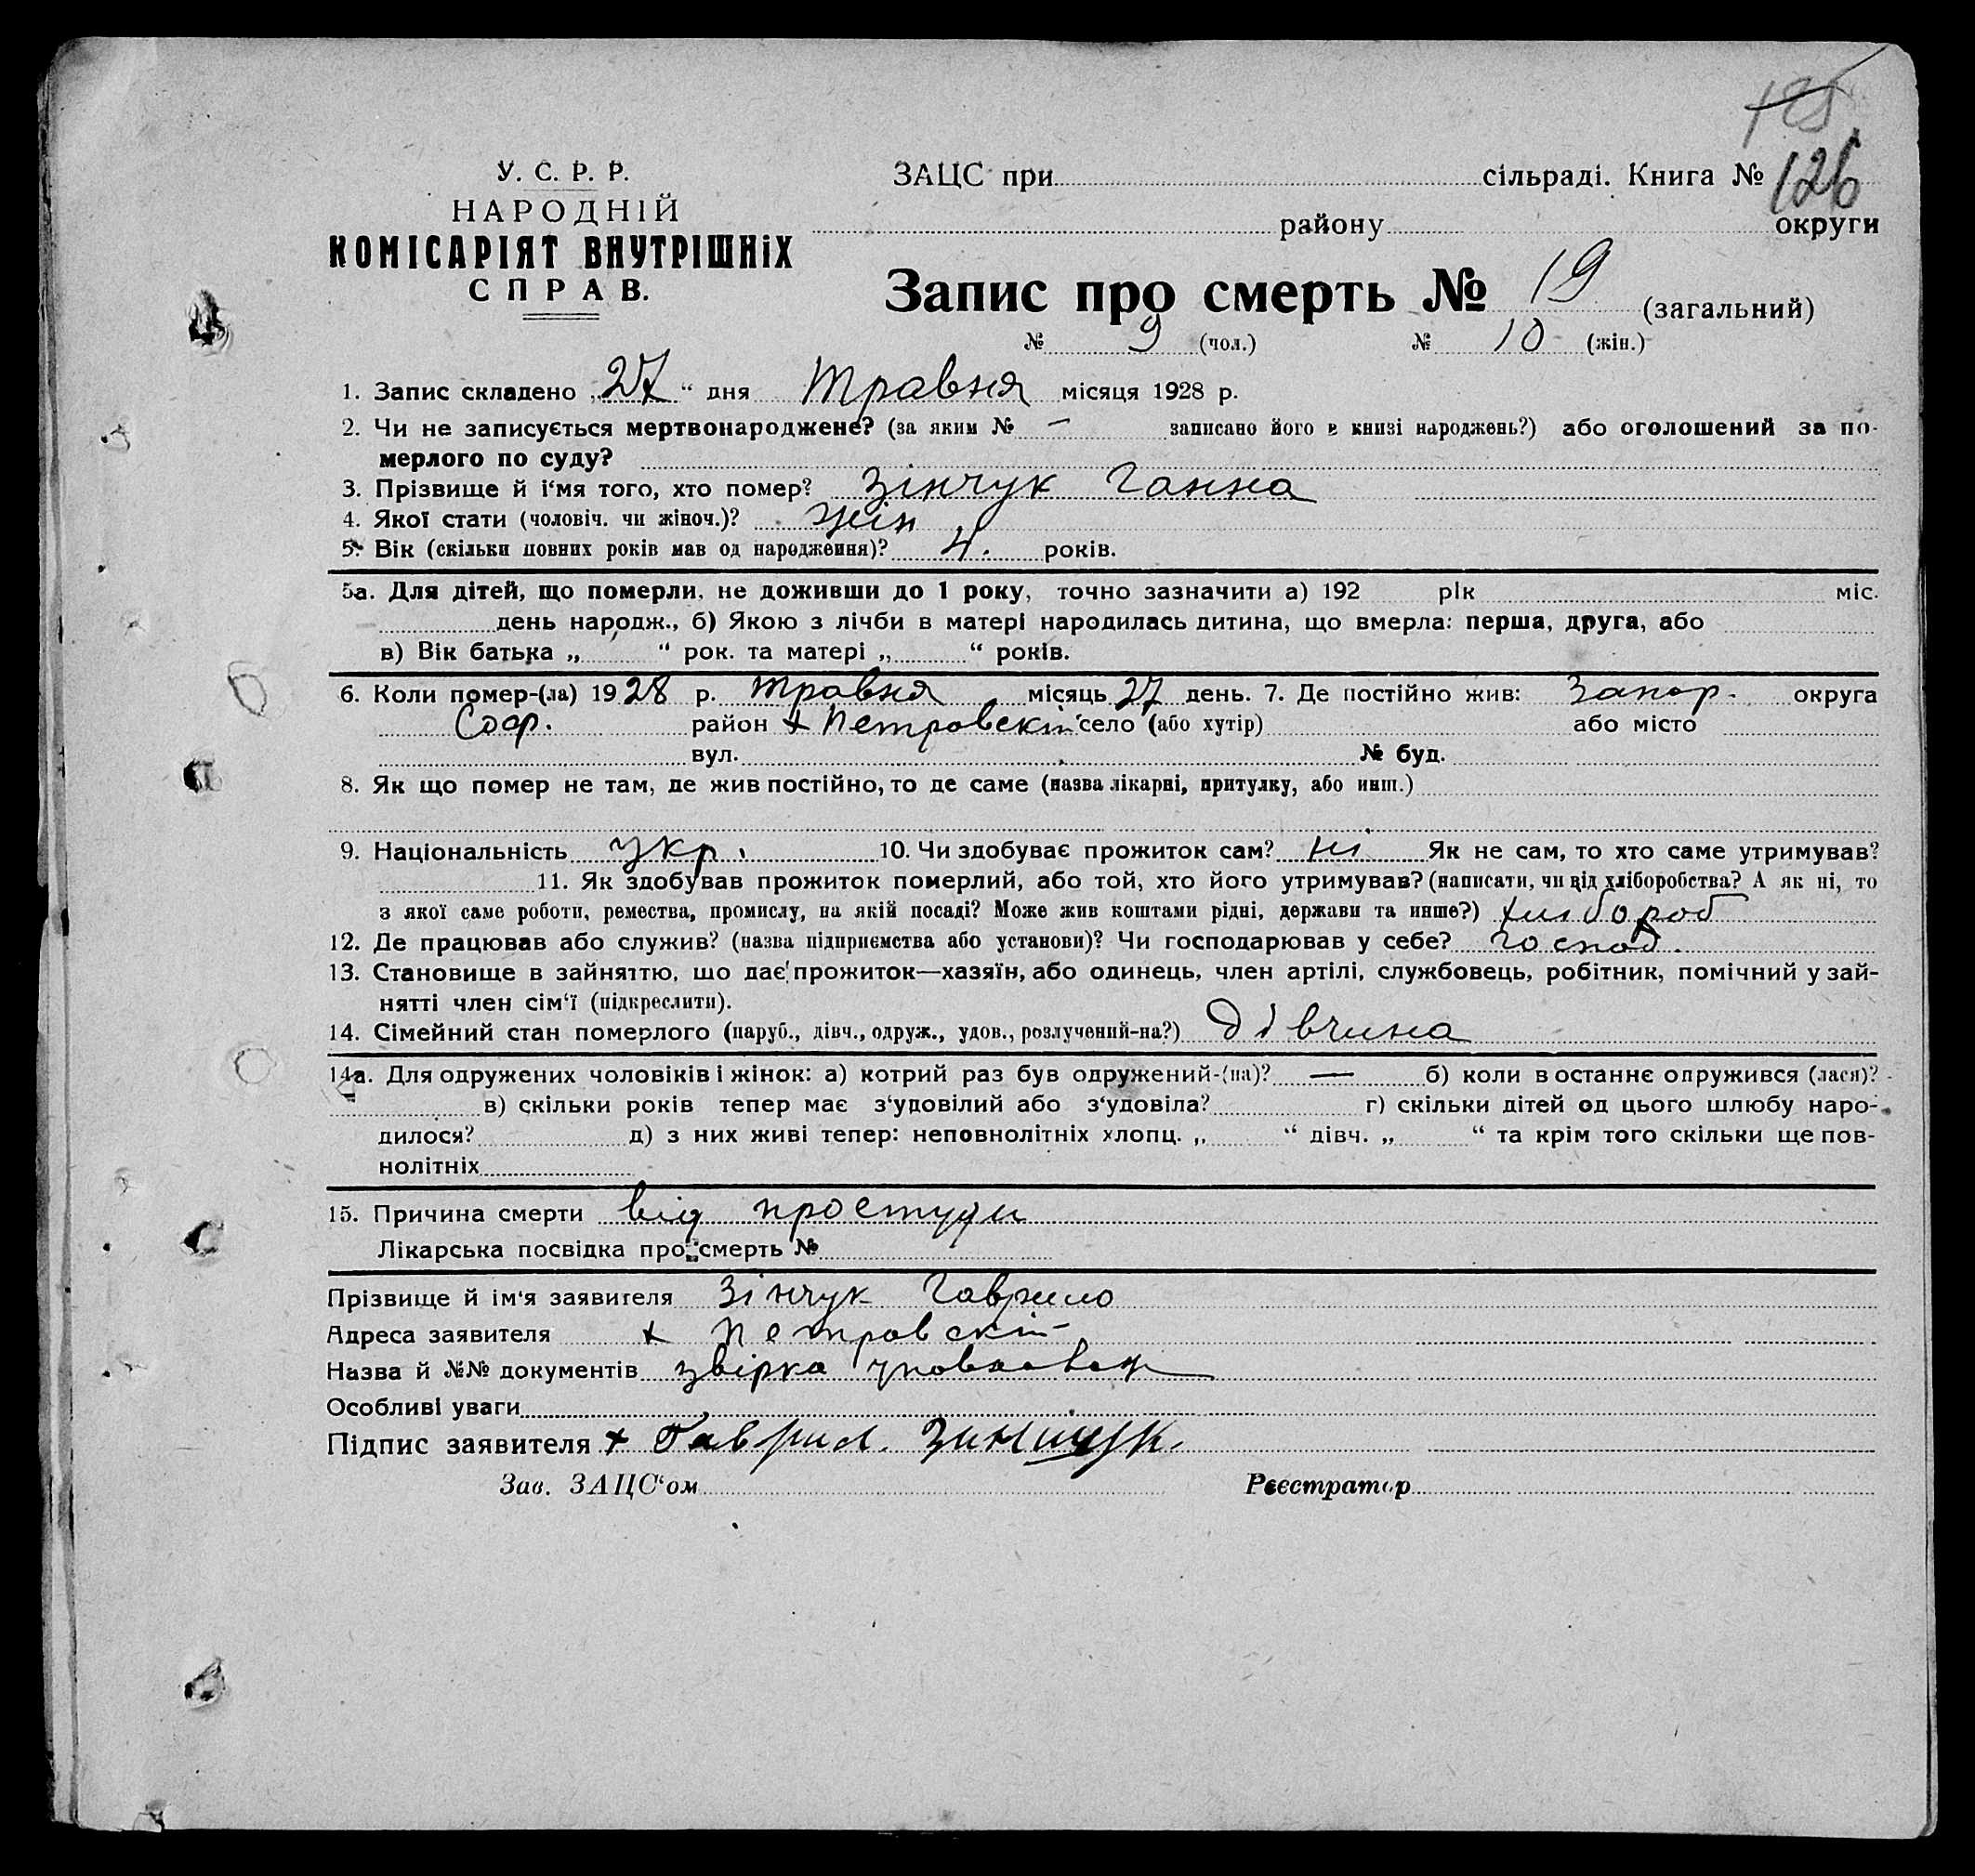 125
У. С. Р. Р.
НАРОДНІЙ
КОМІСАРІЯТ ВНУТРІШНІХ
СПРАВ.
ЗАЦС при сільраді. Книга № 126
району округи
Запис про смерть № 19 (загальний)
№ 9 (чол.) № 10 (жін.)
1. Запис складено „27“ дня Травня місяця 1928 р.
2. Чи не записується мертвонароджене? (за яким № — записано його в книзі народжень?) або оголошений за по-
мерлого по суду?
3. Прізвище й і‘мя того, хто помер? Зінчук Ганна
4. Якої стати (чоловіч. чи жіноч.)? жін
5. Вік (скільки повних років мав од народження)? 4. років.
5а. Для дітей, що померли, не доживши до 1 року, точно зазначити а) 192 рік міс.
день народж., б) Якою з лічби в матері народилась дитина, що вмерла: перша, друга, або
в) Вік батька „ “ рок. та матері „ “ років.
6. Коли помер-(ла) 1928 р. травня місяць 27 день. 7. Де постійно жив: Запор. округа
Соф. район х Петровскій село (або хутір) або місто
вул. № буд.
8. Як що помер не там, де жив постійно, то де саме (назва лікарні, притулку, або инш.)
9. Національність укр. 10. Чи здобуває прожиток сам? ні Як не сам, то хто саме утримував?
11. Як здобував прожиток померлий, або той, хто його утримував? (написати, чи від хліборобства? А як ні, то
з якої саме роботи, ремества, промислу, на якій посаді? Може жив коштами рідні, держави та инше?) хлібороб
12. Де працював або служив? (назва підприємства або установи)? Чи господарював у себе? господ.
13. Становище в зайняттю, що дає прожиток—хазяїн, або одинець, член артілі, службовець, робітник, помічний у зай-
нятті член сім‘ї (підкреслити).
14. Сімейний стан померлого (паруб., дівч., одруж., удов., розлучений-на?) дівчина
14а. Для одружених чоловіків і жінок: а) котрий раз був одружений-(на)? — б) коли востаннє одружився (лася)?
в) скільки років тепер має з‘удовілий або з‘удовіла? г) скільки дітей од цього шлюбу наро-
дилося? д) з них живі тепер: неповнолітніх хлопц. „ “ дівч. „ “ та крім того скільки ще пов-
нолітніх
15. Причина смерти від простуди
Лікарська посвідка про смерть №
Прізвище й ім‘я заявителя Зінчук Гаврило
Адреса заявителя х Петровскій
Назва й №№ документів звірка
Особливі уваги
Підпис заявителя + Гаврил. Зинчук.
Зав. ЗАЦС‘ом Реєстратор